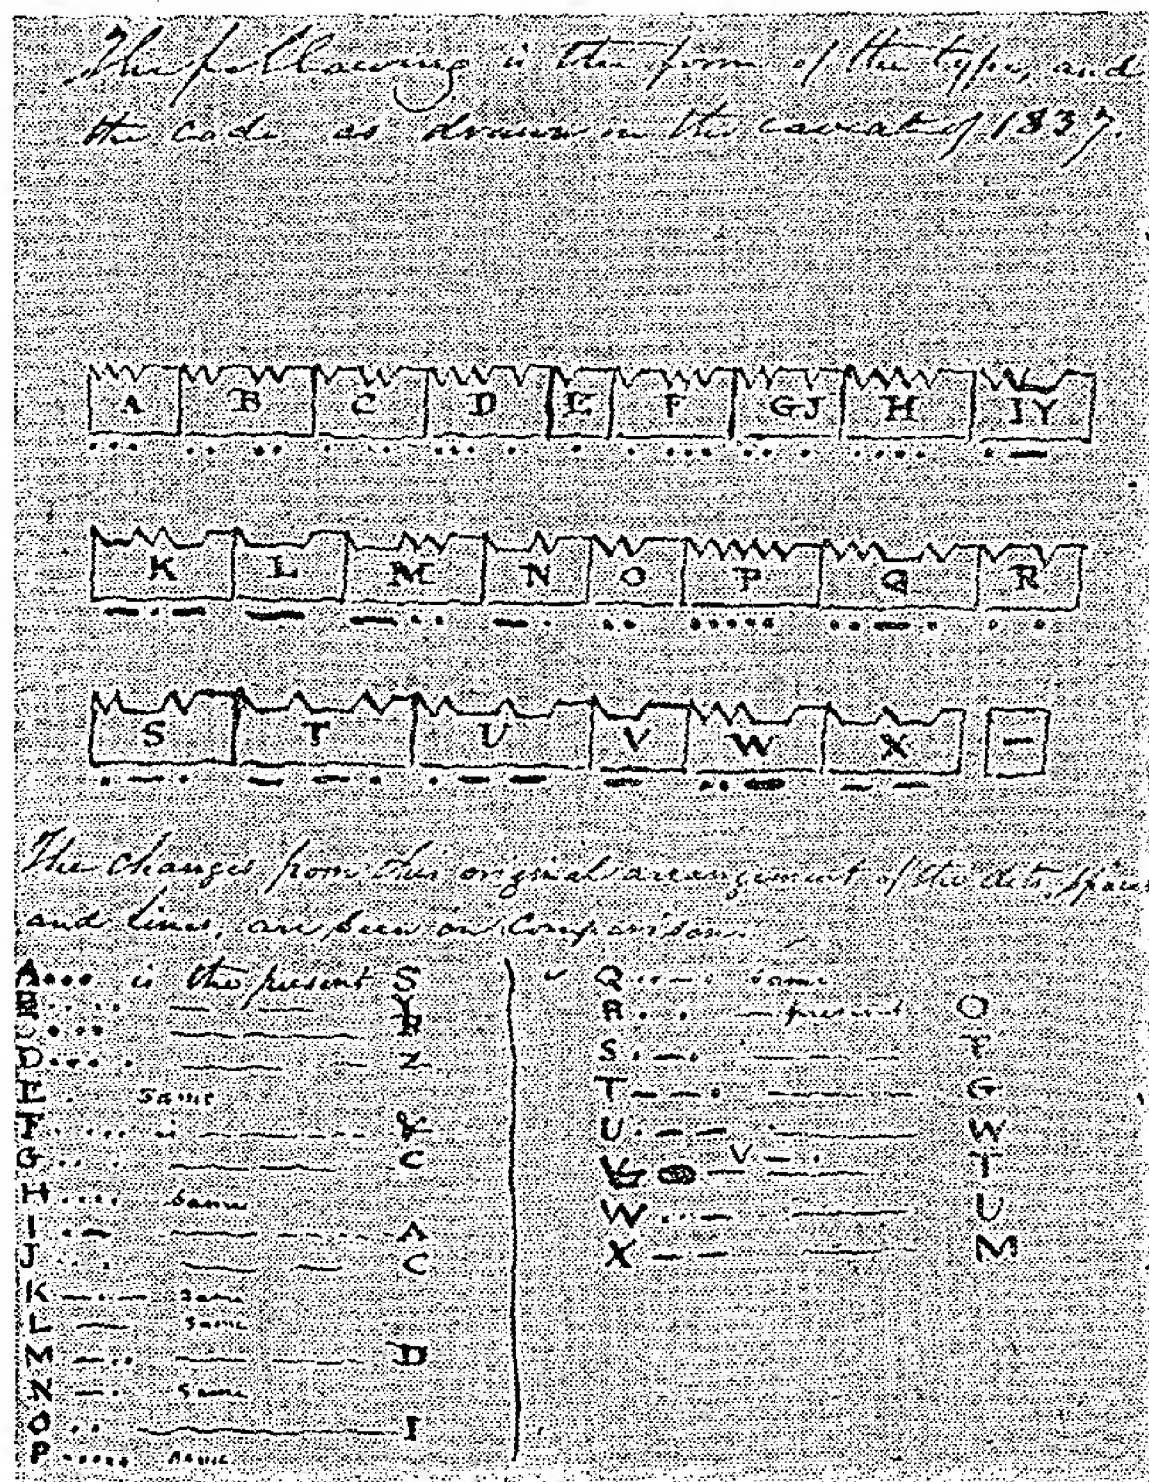 The following is the form of the type, and
the code as drawn in the caveat of 1837.
A B C D E F GJ H IY
••• •• •• • •• ••• • • • ••• •• • •••• • —
K L M N O P Q R
— • — — — •• — • •• ••••• •• — • • ••
S T U V W X —
• — • — — • • — — — •• — — —
The changes from this original arrangement of the dots, spaces
and lines, are seen on comparison.
A ••• is the present S
B •• •• — — — Y
C • •• — — — R
D ••• • — — — Z
E • same
F • ••• — — — &
G •• • — — — C
H •••• same
I • — — — — A
J •• • — — — C
K — • — same
L — same
M — •• — — — D
N — • same
O •• — I
P ••••• same
Q •• — • same
R • •• — present O
S • — • — — — F
T — — • — — — G
U • — — — — — W
V — — — T
V — •
W •• — — — U
X — — — — M